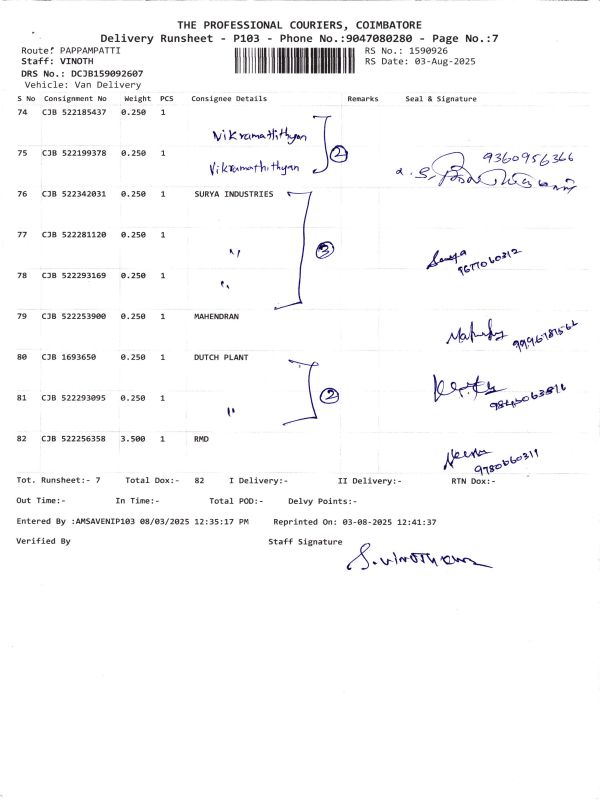 THE PROFESSIONAL COURIERS, COIMBATORE
Delivery Runsheet - P103 - Phone No.:9047080280 - Page No.:7
Route: PAPPAMPATTI RS No.: 1590926
Staff: VINOTH RS Date: 03-Aug-2025
DRS No.: DCJB159092607
Vehicle: Van Delivery
S No Consignment No Weight PCS Consignee Details Remarks Seal & Signature
74 CJB 522185437 0.250 1
Vikramathithyan
75 CJB 522199378 0.250 1 2 9360956366
Vikramathithyan
76 CJB 522342031 0.250 1 SURYA INDUSTRIES
77 CJB 522281120 0.250 1
" 3 Surya
9677060312
78 CJB 522293169 0.250 1
"
79 CJB 522253900 0.250 1 MAHENDRAN
80 CJB 1693650 0.250 1 DUTCH PLANT
81 CJB 522293095 0.250 1 2
"
82 CJB 522256358 3.500 1 RMD
9780660311
Tot. Runsheet:- 7 Total Dox:- 82 I Delivery:- II Delivery:- RTN Dox:-
Out Time:- In Time:- Total POD:- Delvy Points:-
Entered By :AMSAVENIP103 08/03/2025 12:35:17 PM Reprinted On: 03-08-2025 12:41:37
Verified By Staff Signature